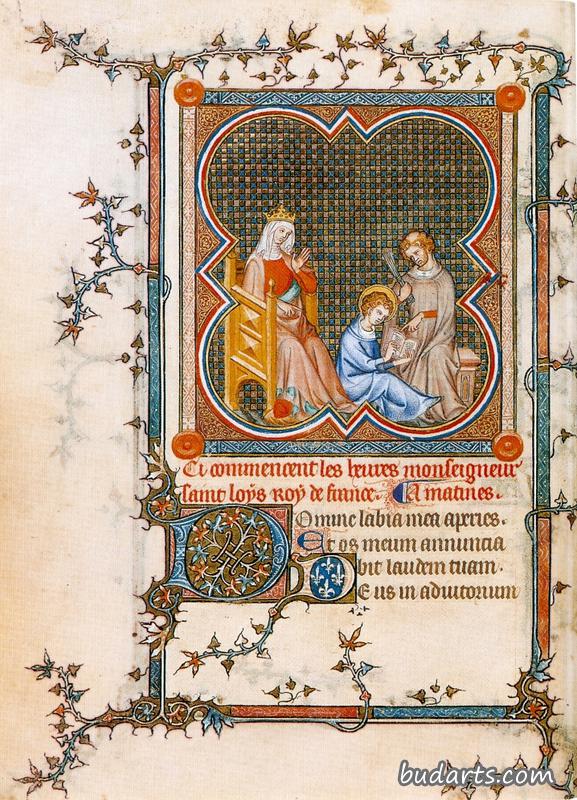 Ci commencent les heures monseigneur
saint loÿs roÿ de france. A matines.
Domine labia mea aperies.
Et os meum annuncia
bit laudem tuam.
Deus in adiutorium
budarts.com